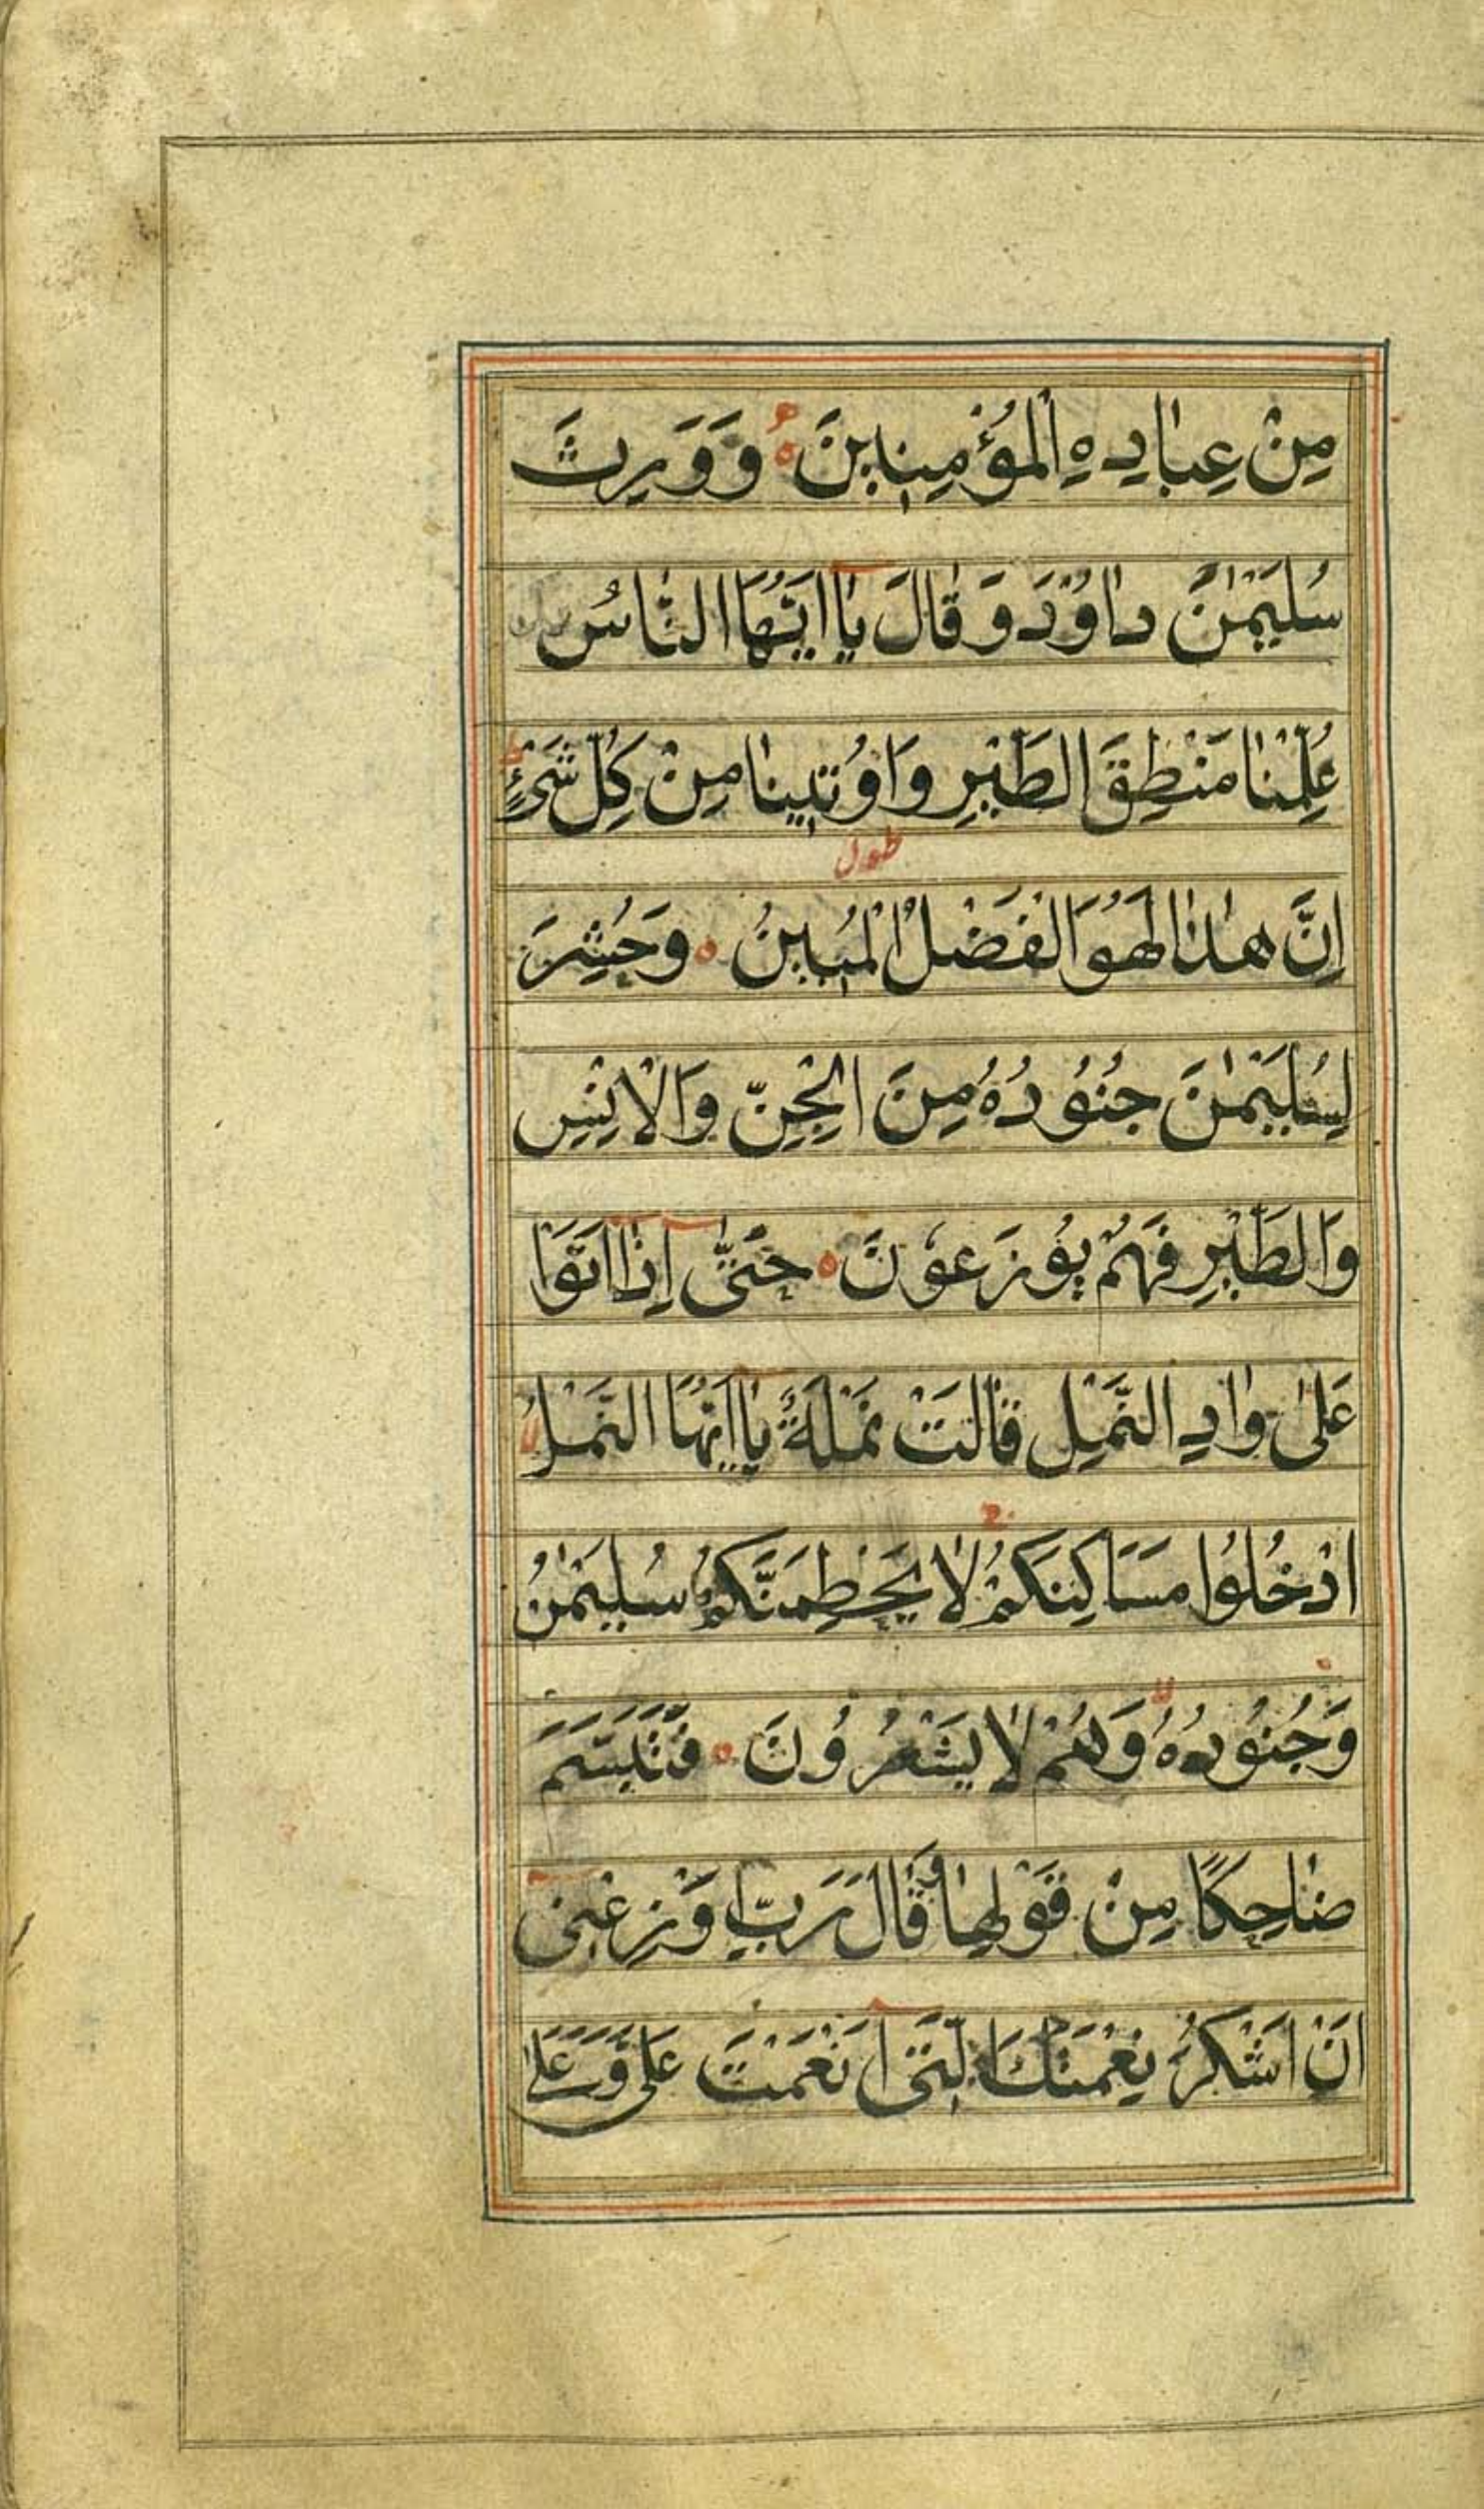 مِنْ عِبَادِهِ الْمُؤْمِنِينَ وَوَرِثَ
سُلَيْمٰنَ دَاوُدَ وَقَالَ يَا اَيُّهَا النَّاسُ
عُلِّمْنَا مَنْطِقَ الطَّيْرِ وَاُوتِينَا مِنْ كُلِّ شَیْءٍ
طول
اِنَّ هٰذَا لَهُوَ الْفَضْلُ الْمُبِينُ وَحُشِرَ
لِسُلَيْمٰنَ جُنُودُهُ مِنَ الْجِنِّ وَالْاِنْسِ
وَالطَّيْرِ فَهُمْ يُوزَعُونَ حَتّٰى اِذَا اَتَوْا
عَلٰى وَادِ النَّمْلِ قَالَتْ نَمْلَةٌ يَا اَيُّهَا النَّمْلُ
ادْخُلُوا مَسَاكِنَكُمْ لَا يَحْطِمَنَّكُمْ سُلَيْمٰنُ
وَجُنُودُهُ وَهُمْ لَا يَشْعُرُونَ فَتَبَسَّمَ
ضَاحِكًا مِنْ قَوْلِهَا وَقَالَ رَبِّ اَوْزِعْنِى
اَنْ اَشْكُرَ نِعْمَتَكَ الَّتِى اَنْعَمْتَ عَلَىَّ وَعَلٰى